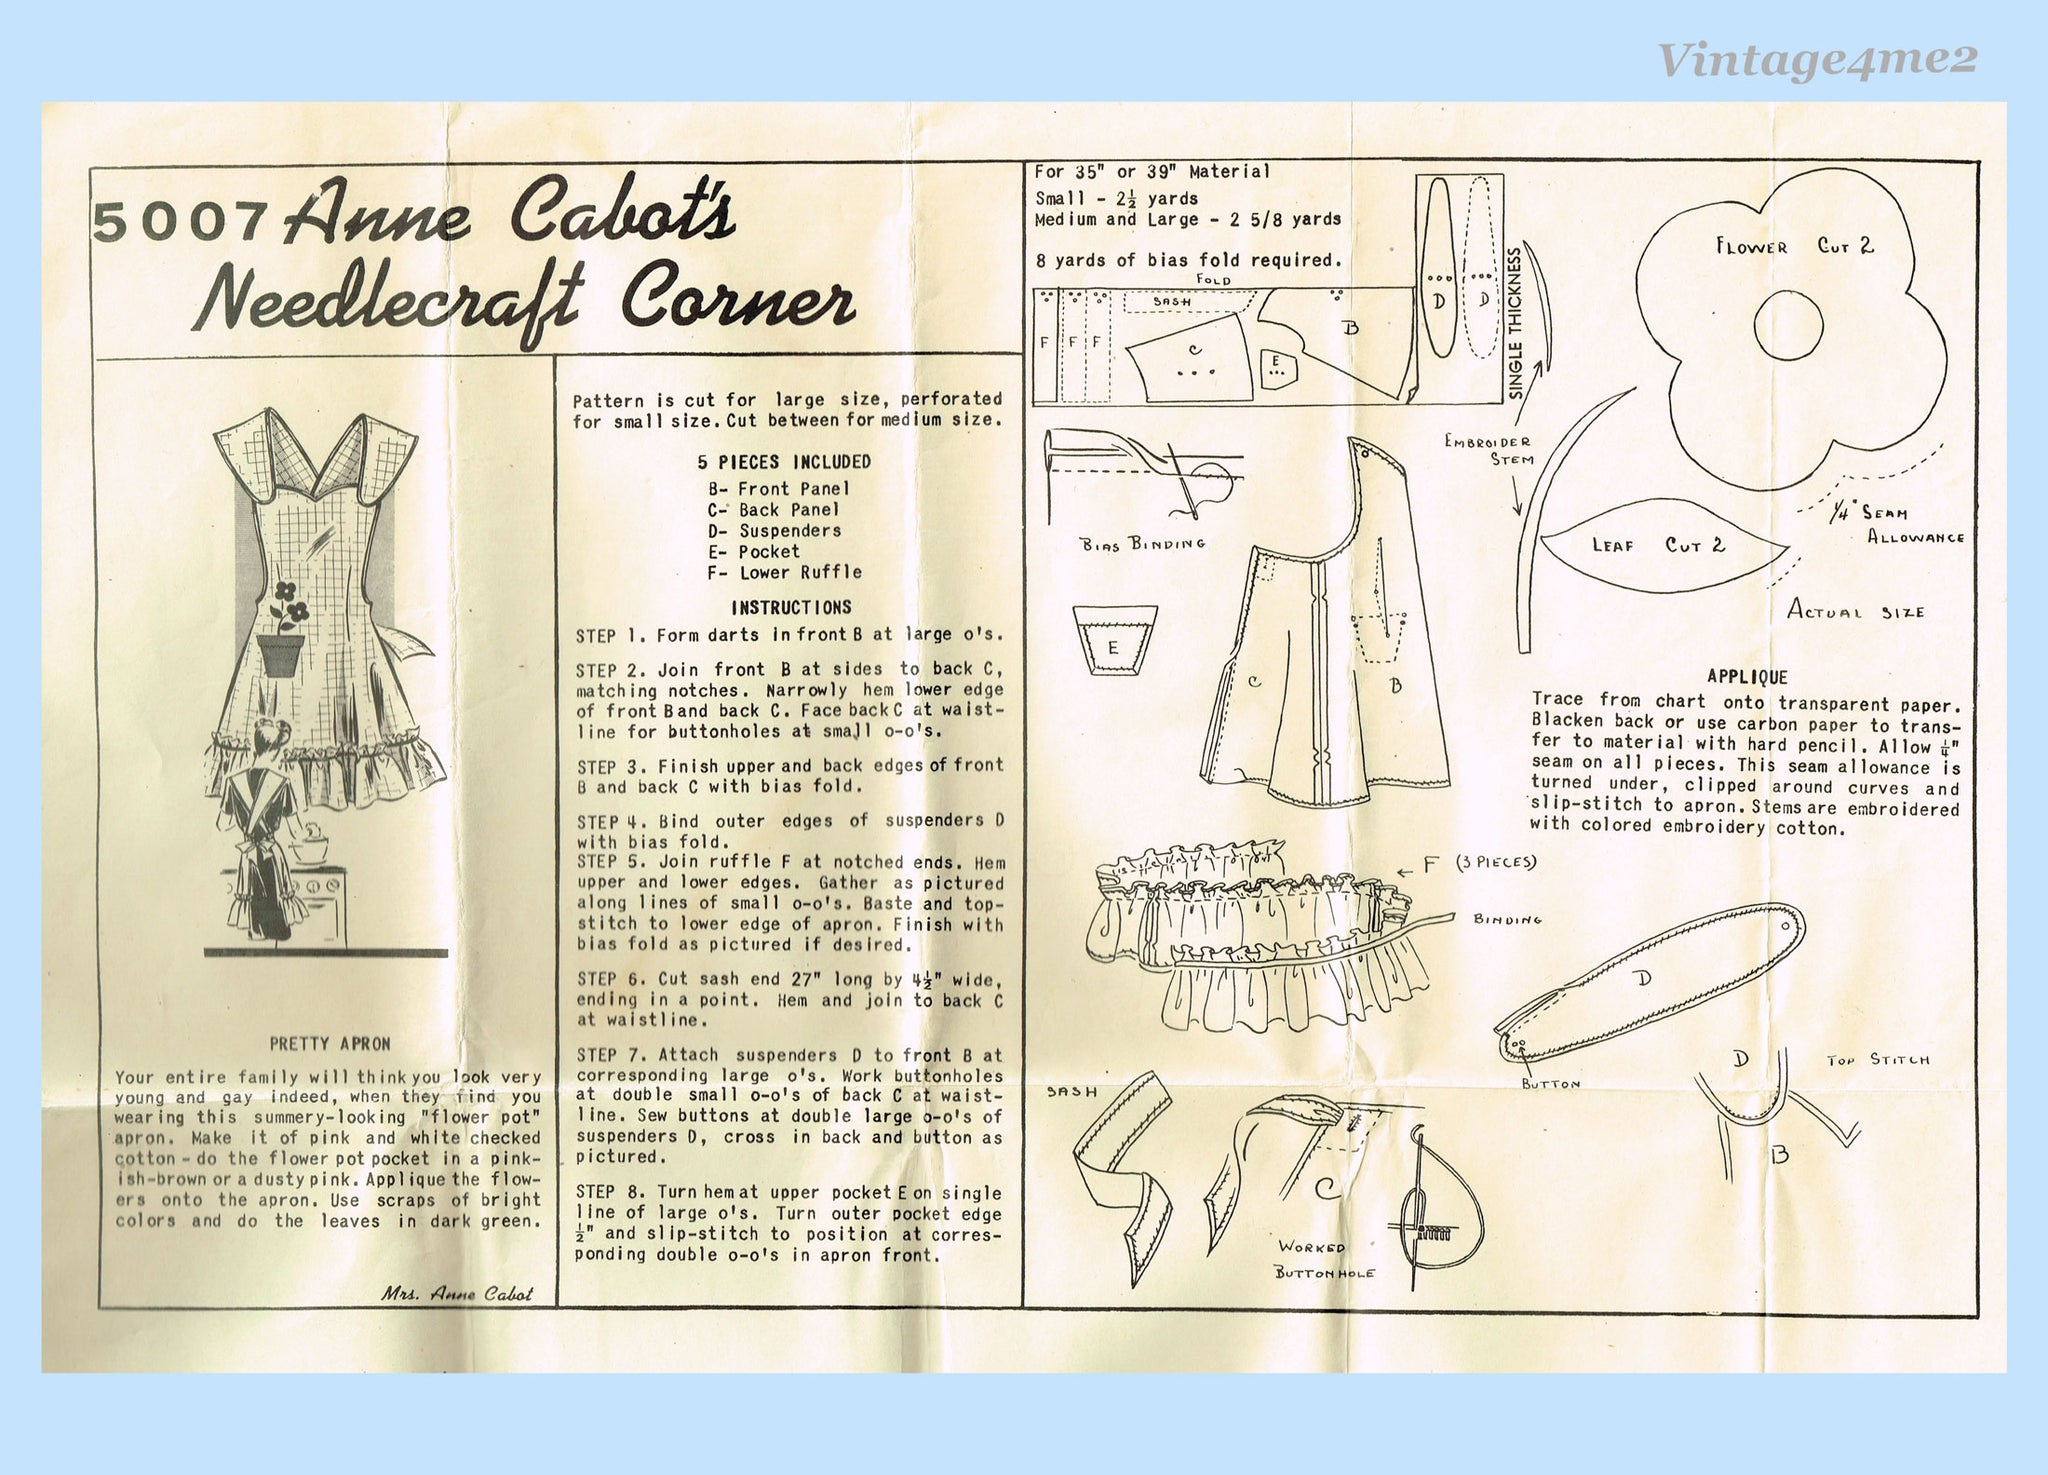 Vintage4me2
5007 Anne Cabot's
Needlecraft Corner
PRETTY APRON
Your entire family will think you look very
young and gay indeed, when they find you
wearing this summery-looking "flower pot"
apron. Make it of pink and white checked
cotton-do the flower pot pocket in a pink-
ish-brown or a dusty pink. Applique the flow-
ers onto the apron. Use scraps of bright
colors and do the leaves in dark green.
Mrs. Anne Cabot
Pattern is cut for large size, perforated
for small size. Cut between for medium size.
5 PIECES INCLUDED
B- Front Panel
C- Back Panel
D- Suspenders
E- Pocket
F- Lower Ruffle
INSTRUCTIONS
STEP 1. Form darts in front B at large o's.
STEP 2. Join front B at sides to back C,
matching notches. Narrowly hem lower edge
of front B and back C. Face back C at waist-
line for buttonholes at small o-o's.
STEP 3. Finish upper and back edges of front
B and back C with bias fold.
STEP 4. Bind outer edges of suspenders D
with bias fold.
STEP 5. Join ruffle F at notched ends. Hem
upper and lower edges. Gather as pictured
along lines of small o-o's. Baste and top-
stitch to lower edge of apron. Finish with
bias fold as pictured if desired.
STEP 6. Cut sash end 27" long by 4½" wide,
ending in a point. Hem and join to back C
at waistline.
STEP 7. Attach suspenders D to front B at
corresponding large o's. Work buttonholes
at double small o-o's of back C at waist-
line. Sew buttons at double large o-o's of
suspenders D, cross in back and button as
pictured.
STEP 8. Turn hem at upper pocket E on single
line of large o's. Turn outer pocket edge
½" and slip-stitch to position at corres-
ponding double o-o's in apron front.
For 35" or 39" Material
Small - 2½ yards
Medium and Large - 2 5/8 yards
8 yards of bias fold required.
FOLD
F
F
F
SASH
C
E
B
D
D
SINGLE THICKNESS
FLOWER CUT 2
EMBROIDER
STEM
LEAF CUT 2
1/4" SEAM
ALLOWANCE
ACTUAL SIZE
BIAS BINDING
E
C
B
APPLIQUE
Trace from chart onto transparent paper.
Blacken back or use carbon paper to trans-
fer to material with hard pencil. Allow ¼"
seam on all pieces. This seam allowance is
turned under, clipped around curves and
slip-stitch to apron. Stems are embroidered
with colored embroidery cotton.
F (3 PIECES)
BINDING
D
BUTTON
D
TOP STITCH
B
SASH
C
WORKED
BUTTONHOLE